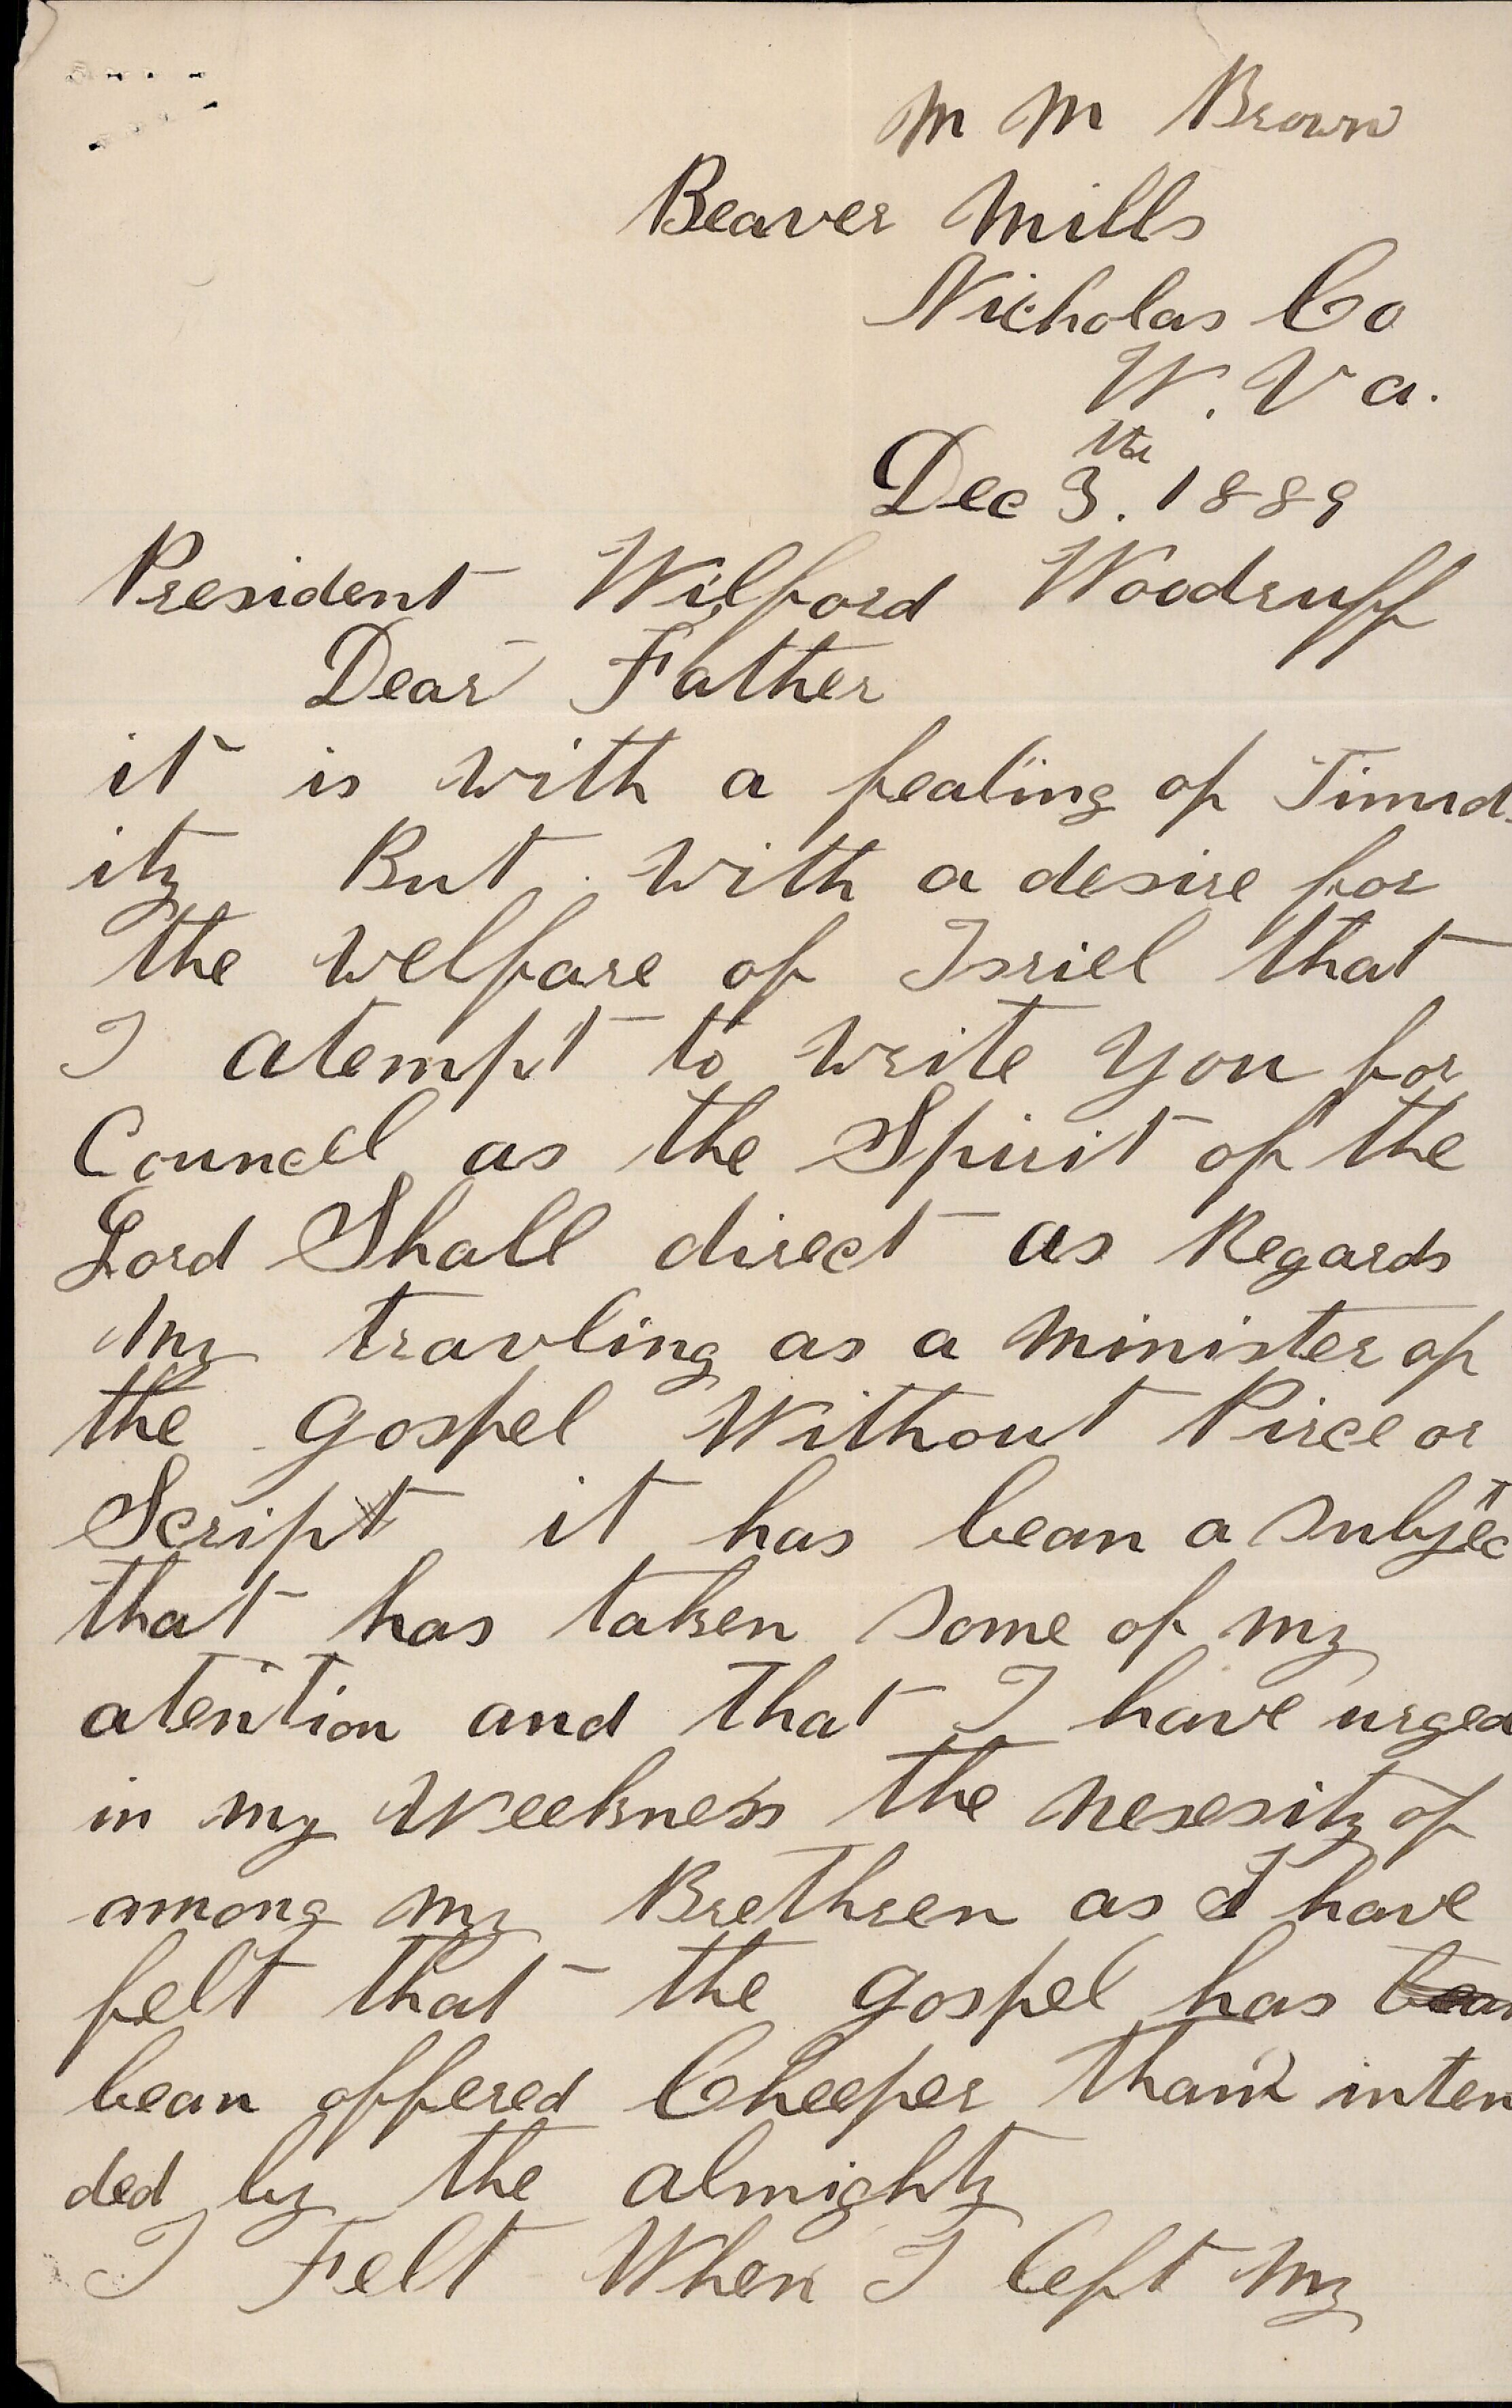 M M Brown
Beaver Mills
Nicholas Co
W. Va.
Dec 3th. 1889
President Wilford Woodruff
Dear Father
it is with a fealing of Timid-
ity But with a desire for
the welfare of Isriel that
I atempt to write you for
Councel as the Spirit of the
Lord Shall direct as Regards
my travling as a minister of
the gospel Without Pirce or
Script it has bean a subject
that has taken some of my
atention and that I have urged
in my Weekness the nesesity of
among my Brethren as I have
felt that the gospel has bean
bean offered Cheeper than inten
ded by the almighty
I Felt When I left my